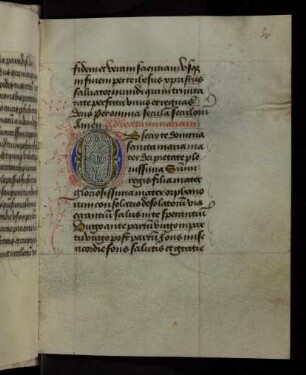 fidem et veram scientiam usq
in finem per te ihesu xpriste
salvator mundi qui in trinita
tate perfecta vivis et regnas
deus per omnia secula seculorum
Amen
Obsecro te domina
sancta maria ma
ter dei pietate ple
nissima Summi
regis filia mater
gloriosissima mater orphano
rum consolatio desolatorum via
errantium salus in te sperantium
Virgo ante partum virgo in par
tu virgo post partum fons mise
ricordie fons salutis et gratie